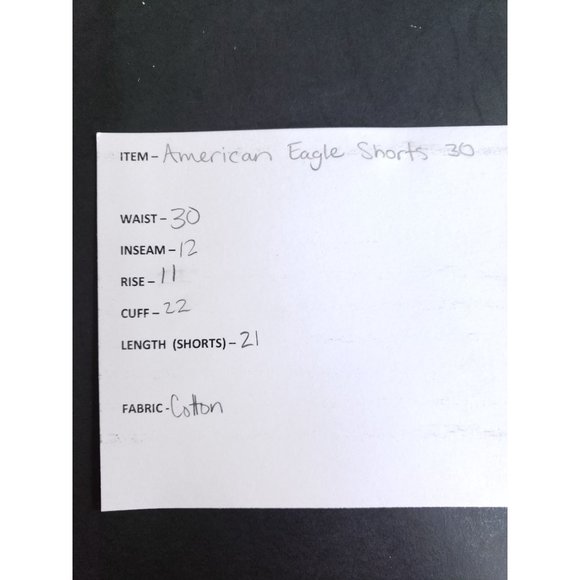 ITEM – American Eagle Shorts 30
WAIST – 30
INSEAM – 12
RISE – 11
CUFF – 22
LENGTH (SHORTS) – 21
FABRIC - Cotton